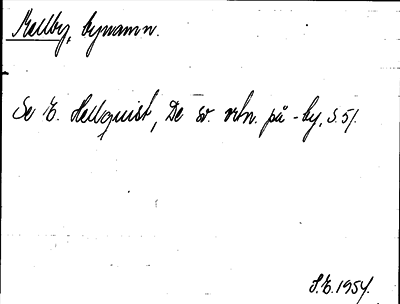 Mellby, bynamn.
Se E. Hellquist, De sv. ortn. på -by, s. 51.
S.E. 1954.